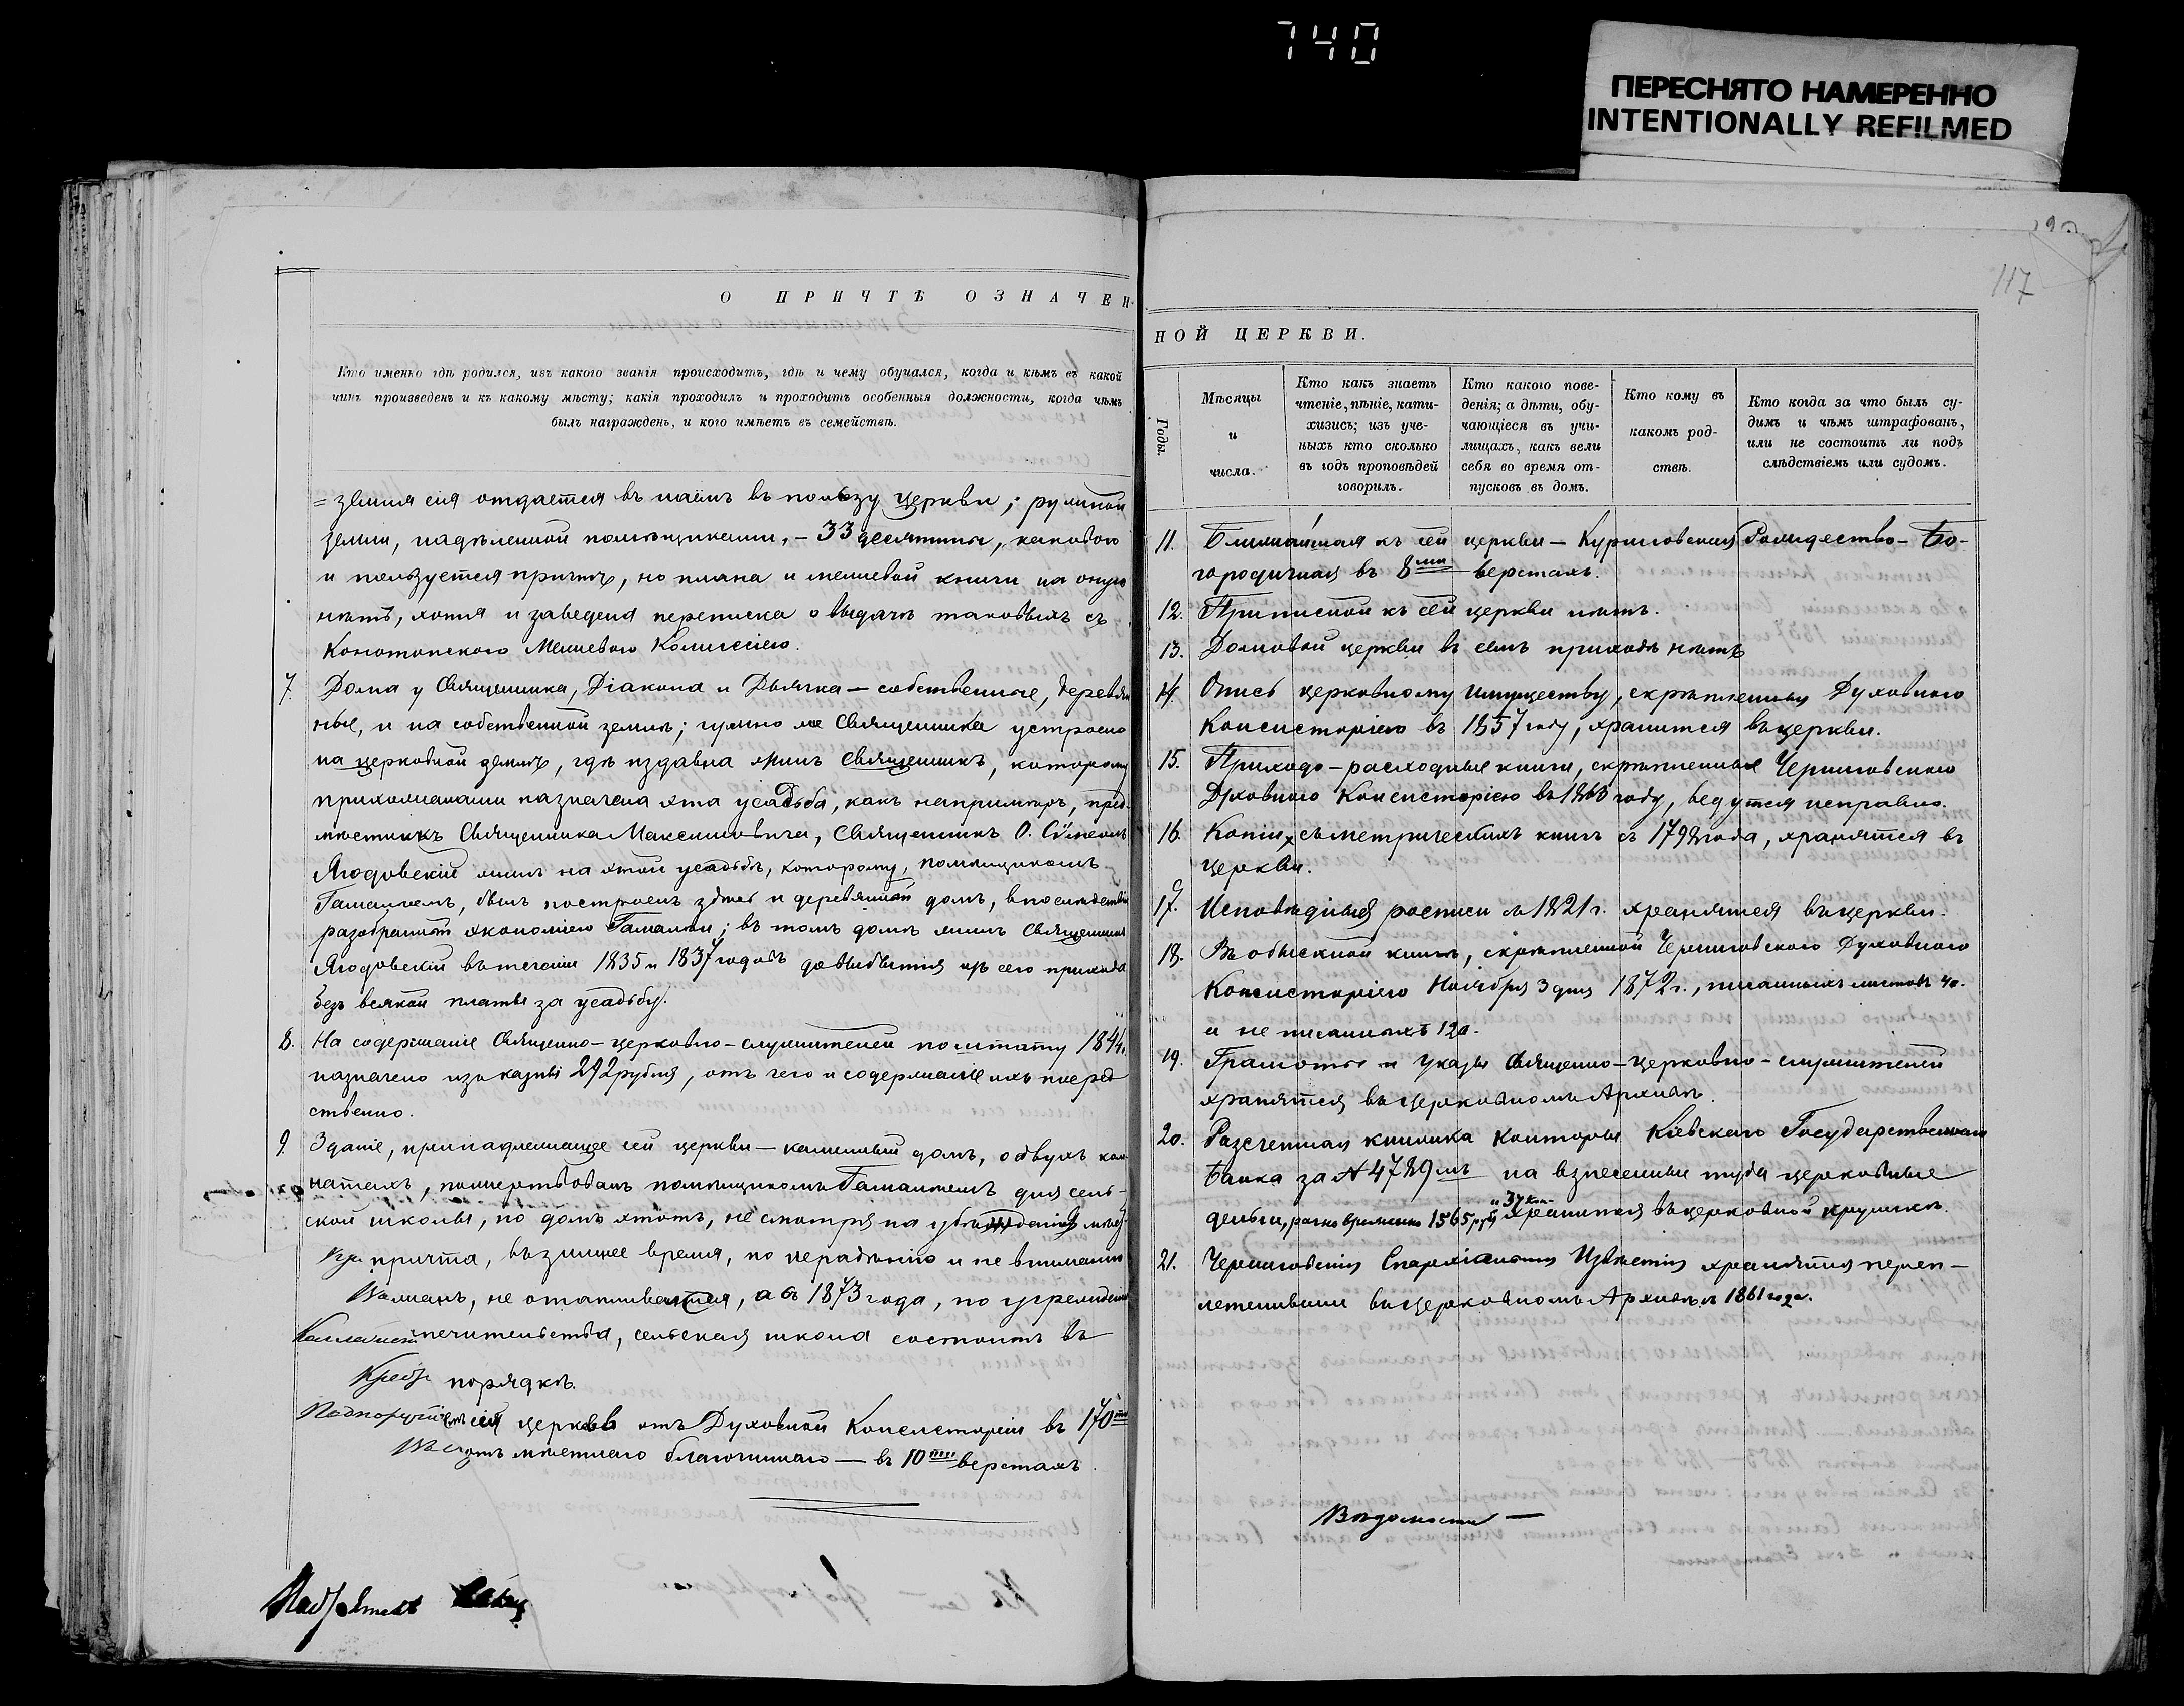 740
ПЕРЕСНЯТО НАМЕРЕННО
INTENTIONALLY REFILMED
117
О ПРИЧТѢ ОЗНАЧЕН-
Кто именно гдѣ родился, изъ какого званія происходитъ, гдѣ и чему обучался, когда и кѣмъ въ какой
чинъ произведенъ и къ какому мѣсту; какія проходилъ и проходитъ особенныя должности, когда чѣмъ
былъ награжденъ, и кого имѣетъ въ семействѣ.
= земля сія отдается въ наёмъ въ пользу церкви; ружной
земли, надѣленной помѣщиками, – 33 десятины, каковою
и пользуется причтъ, но плана и межевой книги на оную
нѣтъ, хотя и заведена переписка о выдачѣ таковыхъ съ
Конотопскою Межевою Комиссіею.
7. Дома у Священника, Діакона и Дьячка – собственные, деревян
ные, и на собственной землѣ; гумно же Священника устроено
на церковной землѣ, гдѣ издавна жилъ Священникъ, которому
прихожанами назначена эта усадьба, какъ напримѣръ, пред-
мѣстникъ Священника Максимовича, Священникъ О. Сѵмеонъ
Ягодовскій жилъ на этой усадьбѣ, которому, помѣщикомъ
Гамалѣемъ, былъ построенъ здѣсь и деревянный домъ, впослѣдствіи
разобранный экономіею Гамалѣи; въ томъ домѣ жилъ Священникъ
Ягодовскій въ теченіи 1835 и 1837 годовъ до выбытія изъ сего прихода
безъ всякой платы за усадьбу.
8. На содержаніе Священно-церковно-служителей по штату 184 г.
назначено изъ казны 292 рубля, отъ чего и содержаніе ихъ посред
ственно.
9. Зданіе, принадлежащее сей церкви – каменный домъ, о двухъ ком
натахъ, пожертвованъ помѣщикомъ Гамалѣемъ для сель-
ской школы, но домъ этотъ, не смотря на убѣжденія
причта, въ зимнее время, по нерадѣнію и не вниманію
не отапливается, а съ 1873 года, по учрежденіи
печительства, сельская школа состоитъ въ
порядкѣ.
сія церковь отъ Духовной Консисторіи въ 170
отъ мѣстнаго благочиннаго – въ 10 верстахъ.
НОЙ ЦЕРКВИ.
Годы.
Мѣсяцы
и
числа.
Кто какъ знаетъ
чтеніе, пѣніе, кати-
хизисъ; изъ уче-
ныхъ кто сколько
въ годъ проповѣдей
говорилъ.
Кто какого пове-
денія; а дѣти, обу-
чающіеся въ учи-
лищахъ, какъ вели
себя во время от-
пусковъ въ домъ.
Кто кому въ
какомъ род-
ствѣ.
Кто когда за что былъ су-
димъ и чѣмъ штрафованъ,
или не состоитъ ли подъ
слѣдствіемъ или судомъ.
11. Ближайшая къ сей церкви – Куриловская Рождество-Бо-
городичная въ 8ми верстахъ.
12. Приписной къ сей церкви нѣтъ.
13. Домовой церкви въ семъ приходѣ нѣтъ
14. Опись церковному имуществу, скрѣпленная Духовною
Консисторіею въ 1857 году, хранится въ церкви.
15. Приходо-расходныя книги, скрѣпленныя Черниговскою
Духовною Консисторіею въ 1863 году, ведутся исправно.
16. Копіи съ метрическихъ книгъ съ 1792 года, хранятся въ
церкви.
17. Исповѣдныя росписи съ 1821 г. хранятся въ церкви.
18. Въ обыскной книгѣ, скрѣпленной Черниговскою Духовною
Консисторіею Ноября 3 дня 1872 г., писанныхъ листовъ 40.
и не писанныхъ 120.
19. Грамоты и указы Священно-церковно-служителей
хранятся въ церковномъ Архивѣ.
20. Разсчетная книжка Конторы Кіевскаго Государственнаго
Банка за № 4789мъ на взнесенныя туда церковныя
деньги, 1565 руб. и 37 коп. хранится въ церковной кружкѣ.
21. Черниговскія Епархіальныя Извѣстія хранятся переп-
летенными въ церковномъ Архивѣ съ 1861 года.
Вѣдомости –